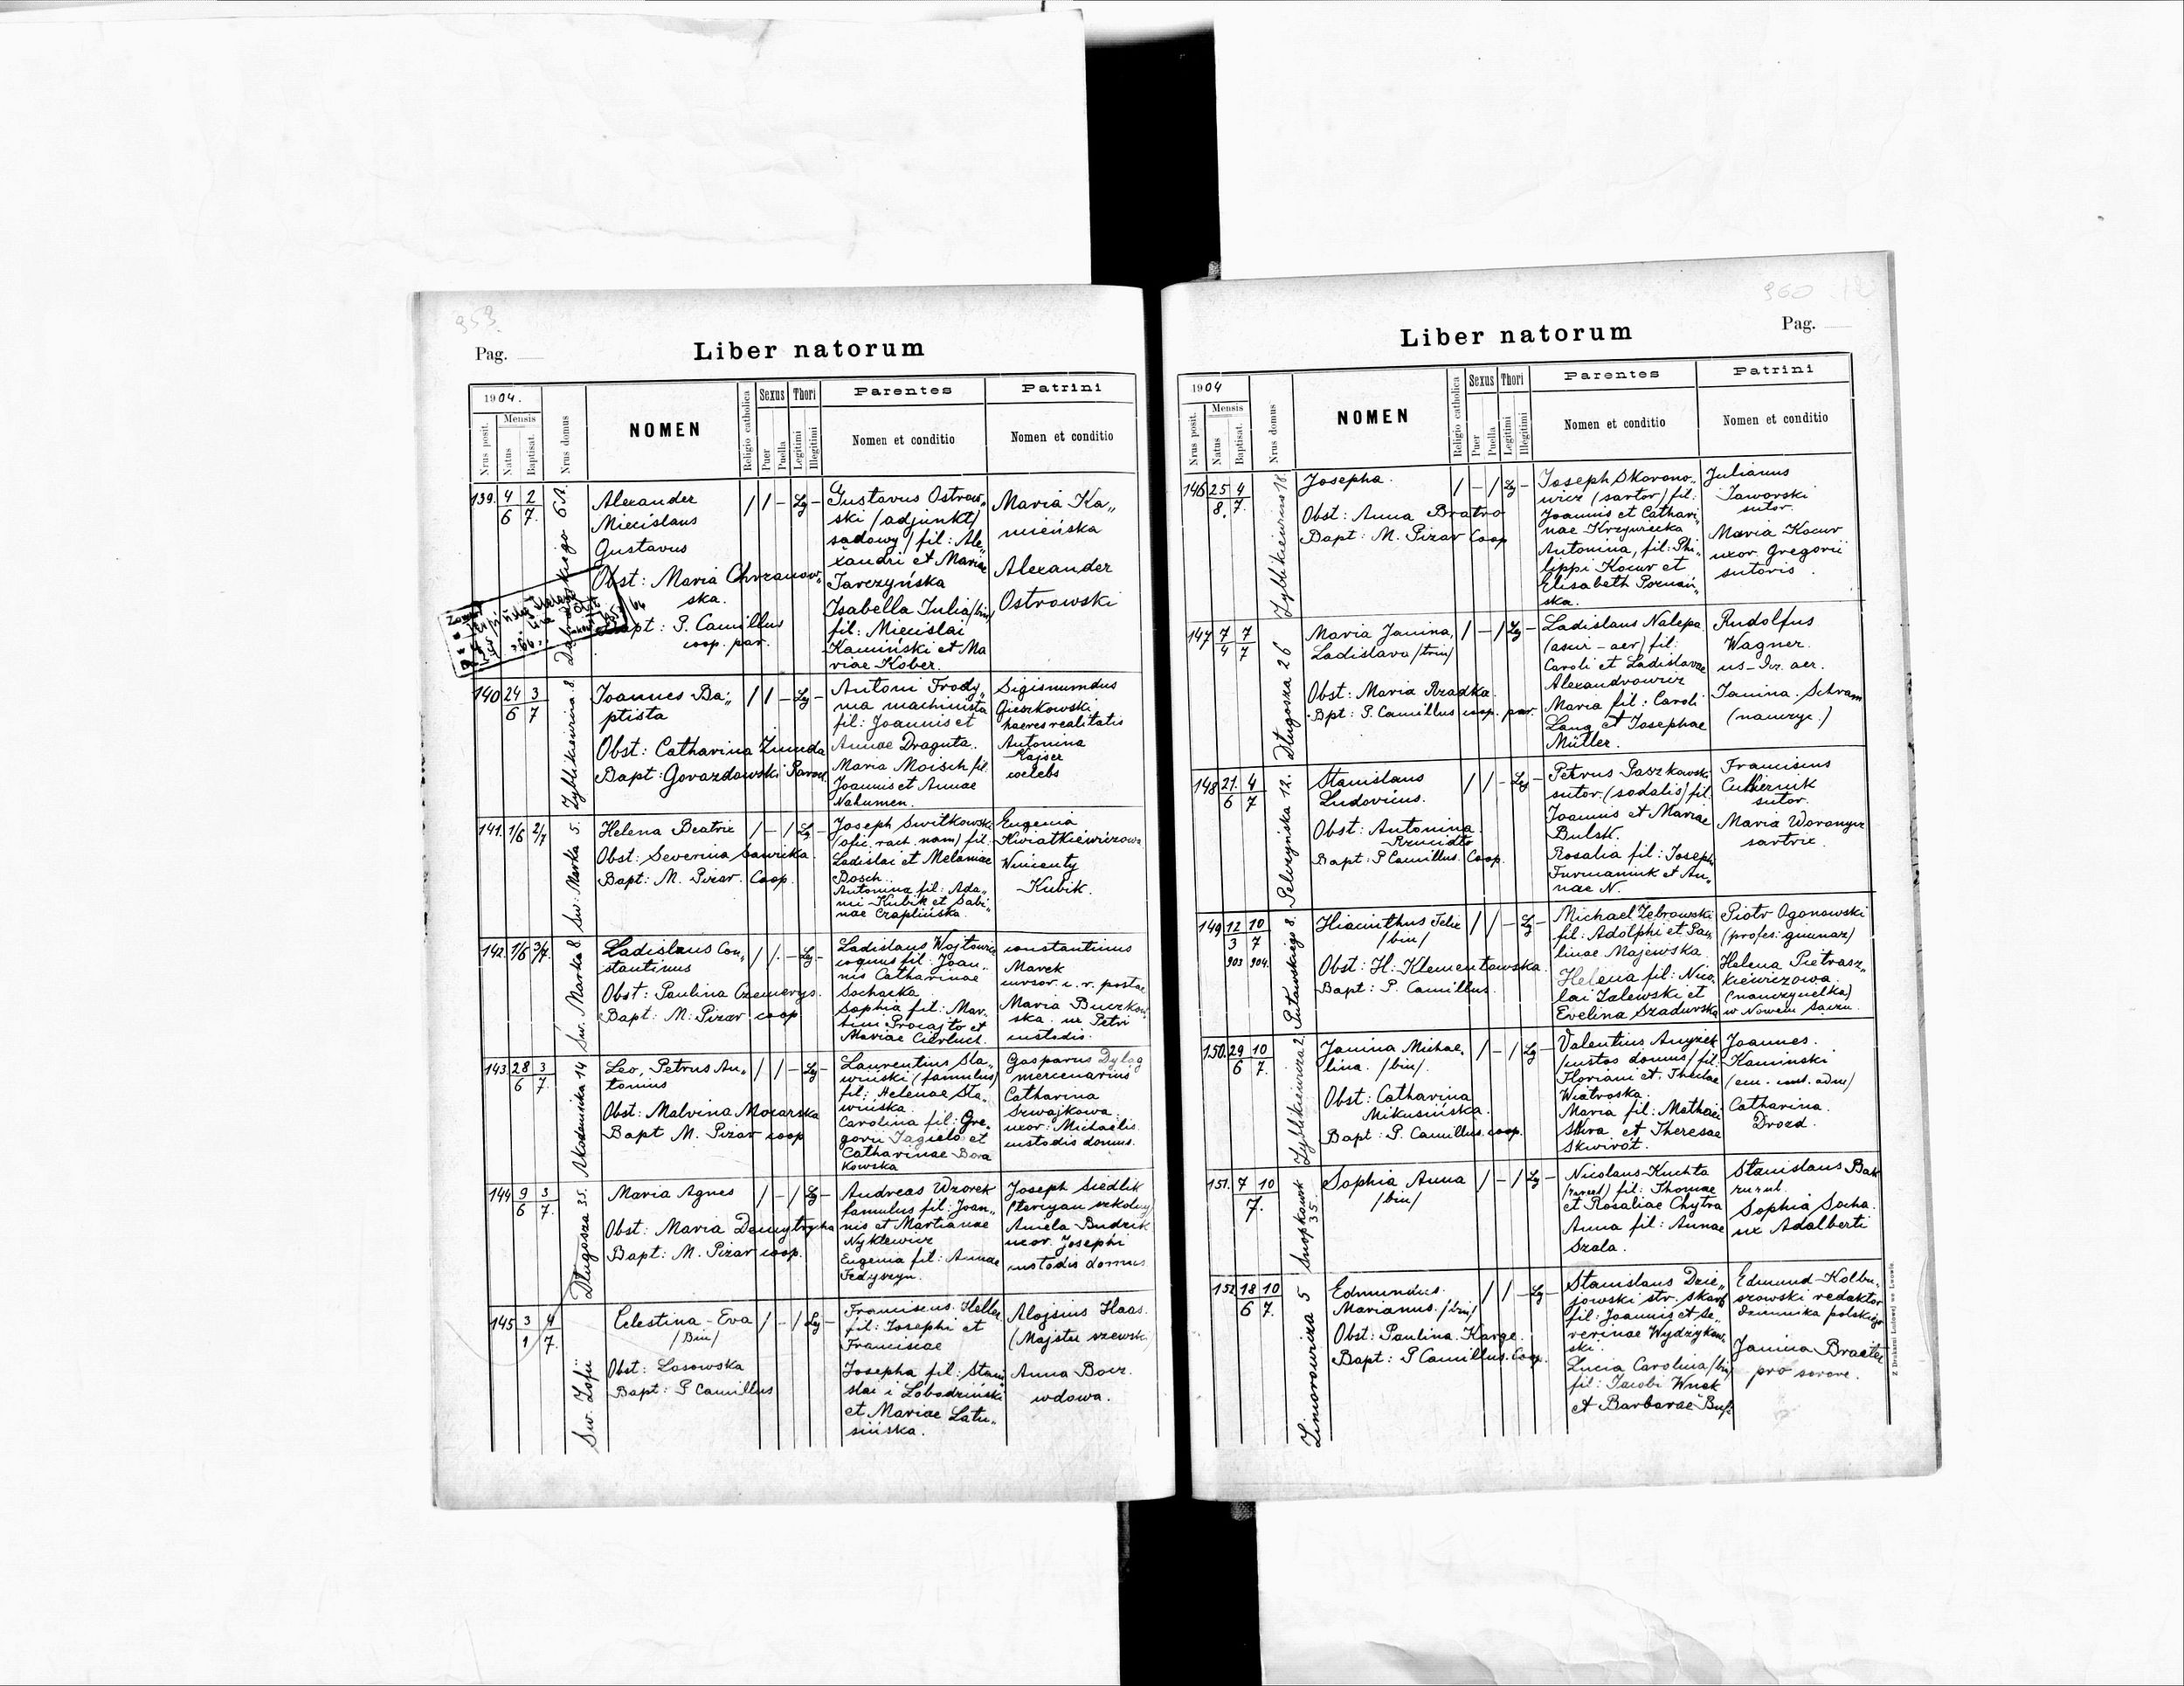 959.
Pag.
Liber natorum
1904.
Nrus posit.
Mensis
Natus
Baptisat.
Nrus domus
NOMEN
Religio catholica
Sexus
Puer
Puella
Thori
Legitimi
Illegitimi
Parentes
Nomen et conditio
Patrini
Nomen et conditio
139. 4/6 2/7.
Alexander
Miecislaus
Gustavus
Obst: Maria Chrzanow„
ska.
Bapt: P. Camillus
coop. par.
/ / - Lg -
Gustavus Ostrow„
ski (adjunkt)
sadowy / fil: Ale„
xandri et Mariae
Tarczyńska
Isabella Julia /bin/
fil: Miecislai
Kamiński et Ma
riae Kober.
Maria Ka„
mieńska
Alexander
Ostrowski
140 24/6 3/7
Zyblikiewicza 8.
Joannes Ba„
ptista
Obst: Catharina Zmuda
Bapt: Gorazdowski Paroch.
/ / - Lg -
Antoni Frody„
ma machinista
fil: Joannis et
Annae Draguta.
Maria Moisch fil.
Joannis et Annae
Nahumen.
Sigismundus
Gieszkowski
haeres realitatis
Antonina
Kajser
coelebs
141. 1/6 2/7
Sw: Marka 5.
Helena Beatrix
Obst: Severina Sawicka.
Bapt: M. Pizar. Coop.
/ - / Lg -
Joseph Switkowski
(ofic. rach. nam) fil.
Ladislai et Melaniae
Bosch.
Antonina fil: Ada„
mi Kubik et Sabi„
nae Czaplińska.
Eugenia
Kwiatkiewiczowa
Wincenty
Kubik.
142. 1/6 3/7.
Sw. Marka 8.
Ladislaus Con„
stantinus
Obst: Paulina Czemerys.
Bapt: M: Pizar coop
/ / - Lg -
Ladislaus Wojtowicz
coquus fil: Joan„
nis Catharinae
Sochacka
Sophia fil: Mar„
tini Procajto et
Mariae Cierluch.
constantinus
Marek
cursor c. r. postae
Maria Buczkow
ska. ux Petri
custodis.
143. 28/6 3/7.
Akademicka 14
Leo, Petrus An„
tonius
Obst: Malvina Mocarska
Bapt M. Pizar coop
/ / - Lg -
Laurentius Sta„
wniski (famulus)
fil: Helenae Sta„
wniska.
Carolina fil: Gre„
gorii Jagielo et
Catharinae Bora
kowska
Gasparus Dyląg
mercenarius
Catharina
Szwajkowa
uxor: Michaelis
custodis domus.
144 9/6 3/7.
Długosza 35.
Maria Agnes
Obst: Maria Demytrycha
Bapt: M. Pizar coop.
/ - / Lg -
Andreas Wzorek
famulus fil: Joan„
nis et Martianae
Nyklewicz
Eugenia fil: Annae
Fedyszyn.
Joseph Siedlik
(tercyan szkolny)
Aniela Budzik
uxor. Josephi
custodis domus
145 3/1 4/7.
Sw. Zofii
Celestina - Eva
/Bin/
Obst: Lasowska
Bapt: P Camillus
/ - / Lg -
Franciscus Heller
fil: Josephi et
Franciscae
Josepha fil: Stani
slai i Lobodziński
et Mariae Latu„
sińska.
Alojsius Haas.
(Majstu szewski)
Anna Bocz.
wdowa.
960
Pag.
Liber natorum
1904
Nrus posit.
Mensis
Natus
Baptisat.
Nrus domus
NOMEN
Religio catholica
Sexus
Puer
Puella
Thori
Legitimi
Illegitimi
Parentes
Nomen et conditio
Patrini
Nomen et conditio
146 25/8. 4/7.
Zyblikiewicza 18.
Josepha.
Obst: Anna Bratro
Bapt: M. Pizar Coop
/ - / Lg -
Joseph Skorono„
wicz (sartor) fil:
Joannis et Cathari„
nae Krzywiecka
Antonina, fil: Phi„
lippi Kocur et
Elisabeth Poznań„
ska.
Julianus
Jaworski
sutor.
Maria Kocur
uxor Gregorii
sutoris.
147 7/4 7/7
Długosza 26
Maria Janina,
Ladislava /trin/
Obst: Maria Rzadka.
Bpt: P. Camillus coop. par.
/ - / Lg -
Ladislaus Nalepa
(asis - aer) fil:
Caroli et Ladislavae
Alexandrowicz
Maria fil: Caroli
Lang et Josephae
Müller.
Rudolfus
Wagner.
us - Dr. aer.
Janina. Schram
(nauczyc.)
148 21./6 4/7
Pelczyńska 12.
Stanislaus
Ludovicus.
Obst: Antonina
Rzucidło
Bapt: P Camillus. Coop.
/ / - Lg -
Petrus Paszkowski
sutor. (sodalis) fil.
Joannis et Mariae
Bulsk.
Rosalia fil: Joseph
Furmaniuk et An„
nae N.
Franciscus
Cukiernik
sutor.
Maria Woronycz
sartrix.
149 12/3 903 10/7 904.
Hiacinthus Felix
/bin/
Obst: H. Klementowska.
Bapt: P. Camillus.
/ / - Lg -
Michael Zebrowski
fil: Adolphi et Pau„
linae Majewska.
Helena fil: Nico„
lai Zalewski et
Evelina Szadurska
Piotr Ogonowski
(profes: gimnaz)
Helena Pietrasz„
kiewiczowa.
(nauczycielka)
w Nowem Saczu.
150. 29/6 10/7.
Zyblikiewicza 2.
Janina Michae„
lina. /bin/
Obst: Catharina
Mikusińska.
Bapt: P. Camillus. coop.
/ - / Lg -
Valentius Anyzek
/custos domus/ fil:
Floriani et. Theclae
Wiatroska.
Maria fil: Mathaei
Skira et Theresae
Skwirot.
Joannes.
Kaminski
Catharina.
Drozd.
151. 7/7. 10
Snopkowsk
35.
Sophia Anna
/bin/
/ - / Lg -
Nicolaus Kuchta
fil: Thomae
et Rosaliae Chytra
Anna fil: Annae
Szala.
Stanislaus Bak
Sophia Socha.
ux Adalberti
152 18/6 10/7.
Zimorowicza 5
Edmundus.
Marianus. /bin/
Obst: Paulina Karge.
Bapt: P Camillus. Coop.
/ / - Lg -
Stanislaus Dzie„
jowski str. skarb
fil: Joannis et Se„
verinae Wydzykow„
ski.
Lucia Carolina /bin/
fil: Jacobi Wnek
et Barbarae
Edmund Kolbu„
szowski redaktor
dziennika polskiego
Janina Braeter
pro sorore.
Z Drukarni Ludowej we Lwowie.